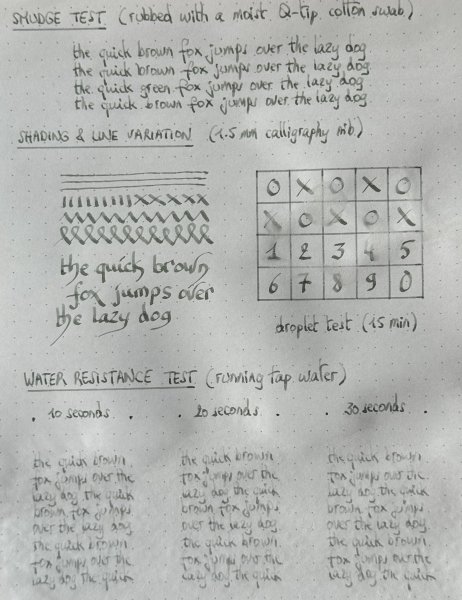 SMUDGE TEST (rubbed with a moist Q-tip cotton swab)
the quick brown fox jumps over the lazy dog
the quick brown fox jumps over the lazy dog
the quick green fox jumps over the lazy dog
the quick brown fox jumps over the lazy dog
SHADING & LINE VARIATION (1.5 mm calligraphy nib)
the quick brown
fox jumps over
the lazy dog
O X O X O
X O X O X
1 2 3 4 5
6 7 8 9 0
droplet test (15 min)
WATER RESISTANCE TEST (running tap water)
. 10 seconds . . 20 seconds . . 30 seconds .
the quick brown
fox jumps over the
lazy dog the quick
brown fox jumps
over the lazy dog
the quick brown
fox jumps over the
lazy dog the quick
the quick brown
fox jumps over the
lazy dog the quick
brown fox jumps
over the lazy dog
the quick brown
fox jumps over the
lazy dog the quick
the quick brown
fox jumps over the
lazy dog the quick
brown fox jumps
over the lazy dog
the quick brown
fox jumps over the
lazy dog the quick